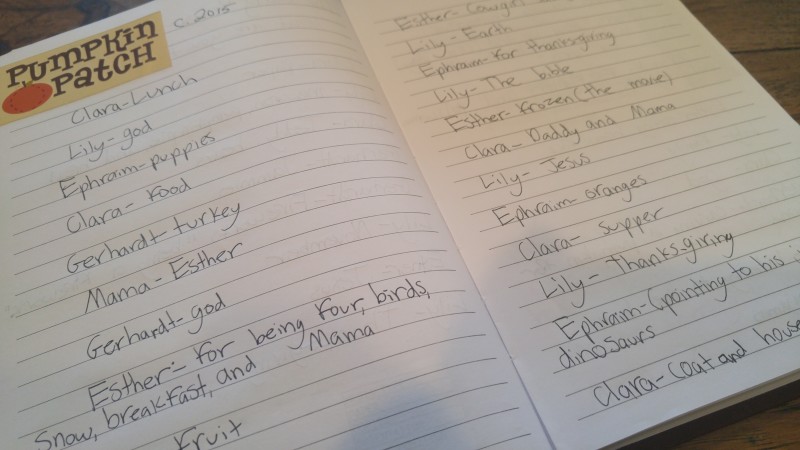 PUMPKIN
PATCH
c. 2015
Clara-Lunch
Lily-god
Ephraim-puppies
Clara- Food
Gerhardt-turkey
Mama-Esther
Gerhardt-god
Esther- for being four, birds,
Snow, breakfast, and Mama
Fruit
Esther- Cowgirl
Lily- Earth
Ephraim- for thanksgiving
Lily- The bible
Esther- Frozen (the movie)
Clara- Daddy and Mama
Lily- Jesus
Ephraim- oranges
Clara- supper
Lily- Thanksgiving
Ephraim-(pointing to his
dinosaurs
Clara-Coat and house